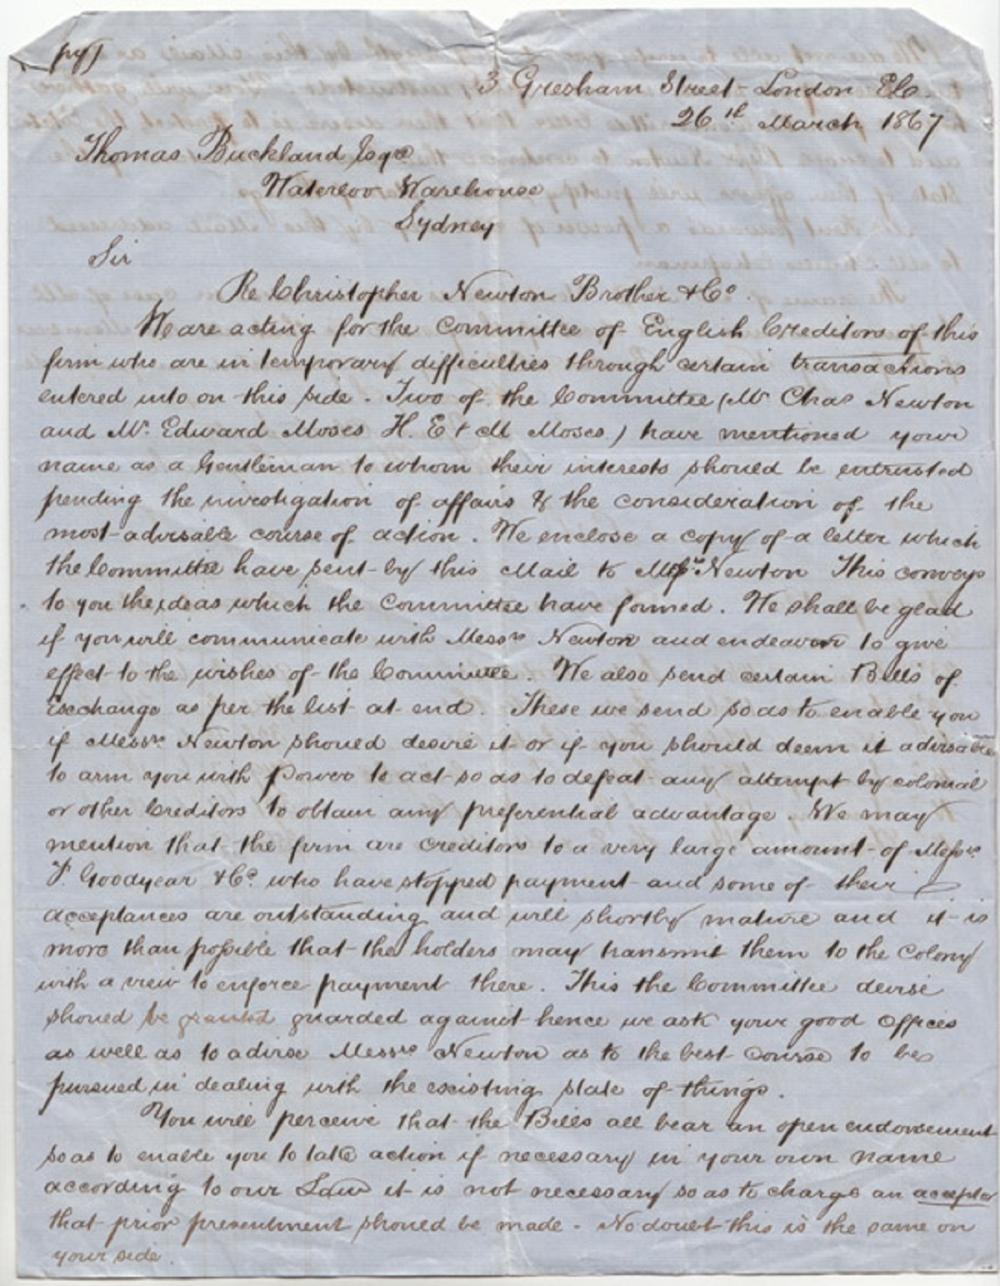 py)
3 Gresham Street - London E.C.
26th March 1867
Thomas Buckland Esqre
Waterloo Warehouse
Sydney
Sir
Re Christopher Newton Brother & Co.
We are acting for the Committee of English Creditors of this
firm who are in temporary difficulties through certain transactions
entered into on this side. Two of the Committee (Mr Chas Newton
and Mr. Edward Moses H. E & M Moses) have mentioned your
name as a Gentleman to whom their interests should be entrusted
pending the investigation of affairs & the consideration of the
most advisable course of action. We enclose a copy of a letter which
the Committee have sent by this Mail to Messrs Newton This conveys
to you the ideas which the Committee have formed. We shall be glad
if you will communicate with Messrs Newton and endeavour to give
effect to the wishes of the Committee. We also send certain Bills of
Exchange as per the list at end. These we send so as to enable you
if Messrs Newton should desire it or if you should deem it advisable
to arm you with power to act so as to defeat any attempt by colonial
or other Creditors to obtain any preferential advantage. We may
mention that the firm are creditors to a very large amount of Messrs
F. Goodyear & Co. who have stopped payment and some of their
acceptances are outstanding and will shortly mature and it is
more than possible that the holders may transmit them to the Colony
with a view to enforce payment there. This the Committee desire
should be guarded against hence we ask your good Offices
as well as to advise Messrs Newton as to the best course to be
pursued in dealing with the existing state of things.
You will perceive that the Bills all bear an open endorsement
so as to enable you to take action if necessary in your own name
according to our Law it is not necessary so as to charge an acceptor
that prior presentment should be made - No doubt this is the same on
your side.